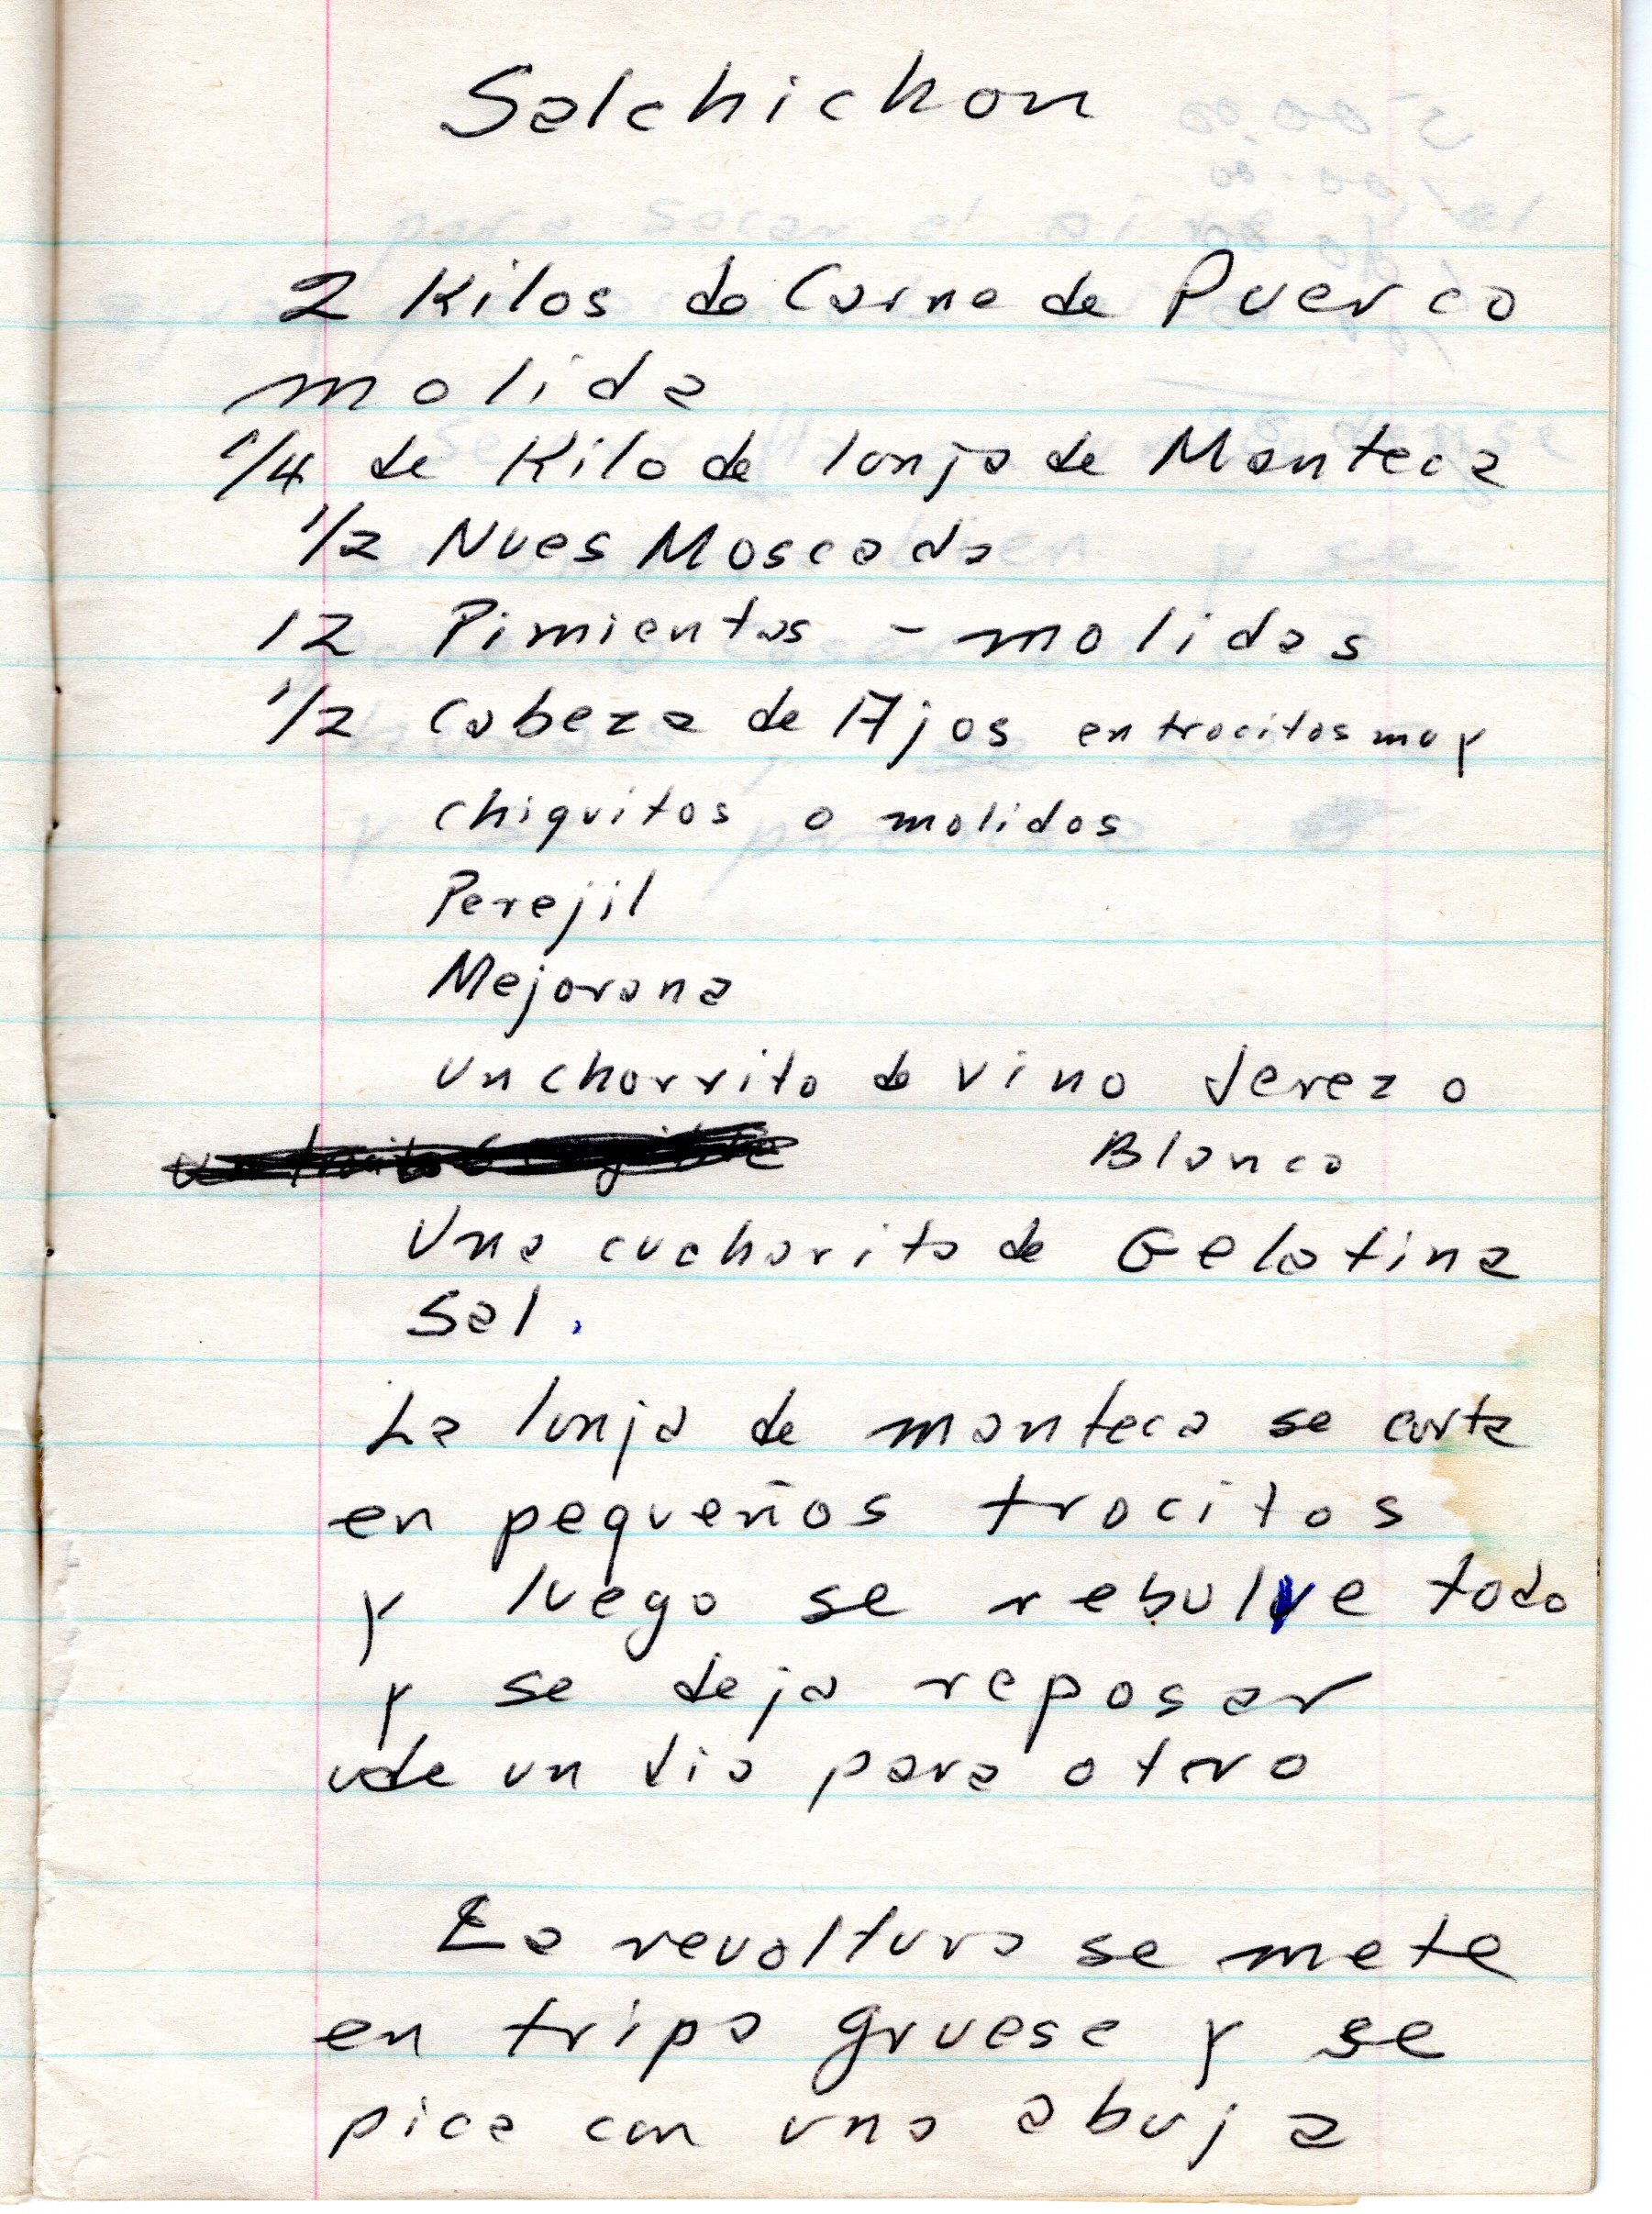 Salchichon
2 Kilos de Carne de Puerco
molida
1/4 de Kilo de lonja de Manteca
1/2 Nues Moscada
12 Pimientas - molidas
1/2 Cabeza de Ajos en trocitos muy
chiquitos o molidos
Perejil
Mejorana
Un chorrito de vino Jerez o
Blanco
Una cucharita de Gelatina
Sal.
La lonja de manteca se corta
en pequeños trocitos
y luego se rebulve todo
y se deja reposar
de un dia para otro
La revoltura se mete
en tripa gruesa y se
pica con una abuja